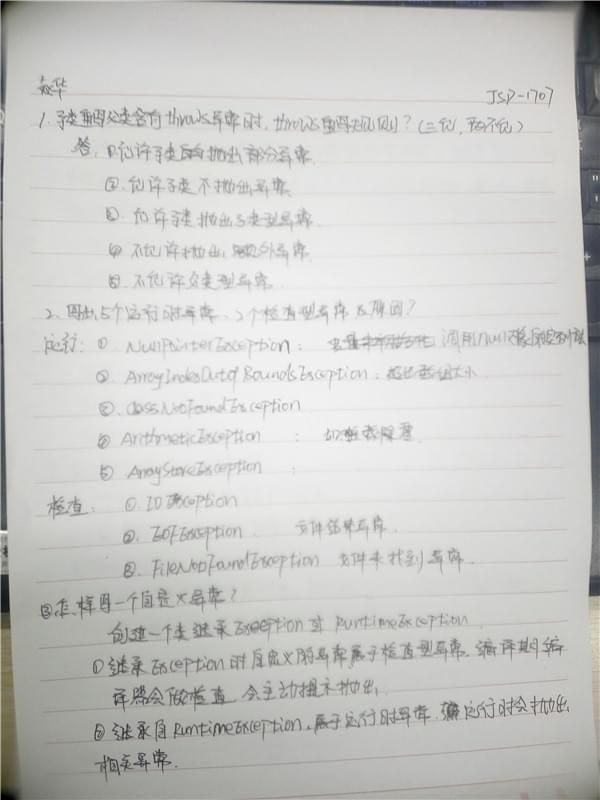 JSD-1707
1. 子类重写父类含有throws异常时, throws重写规则? (三允, 两不允)
答, ①允许子类抛出部分异常.
②. 允许子类不抛出异常.
③. 允许子类抛出子类型异常.
④ 不允许抛出额外异常.
⑤. 不允许父类型异常.
2. 写出5个运行时异常、3个检查型异常及原因?
运行: ① NullPointerException: 调用null对象
② ArrayIndexOutofBoundsException: 超出数组大小
③. ClassNotFoundException
④ ArithmeticException : 除零
⑤ ArrayStoreException :
检查: ①. IOException
②. EOFException. 文件结束异常.
③. FileNotFoundException 文件未找到异常.
③怎样写一个自定义异常?
创建一个类继承Exception或 RuntimeException.
①继承Exception时自定义的异常属于检查型异常. 编译期编
译器会做检查, 会主动提示抛出.
②继承自RuntimeException, 属于运行时异常. 运行时会抛出
相关异常.